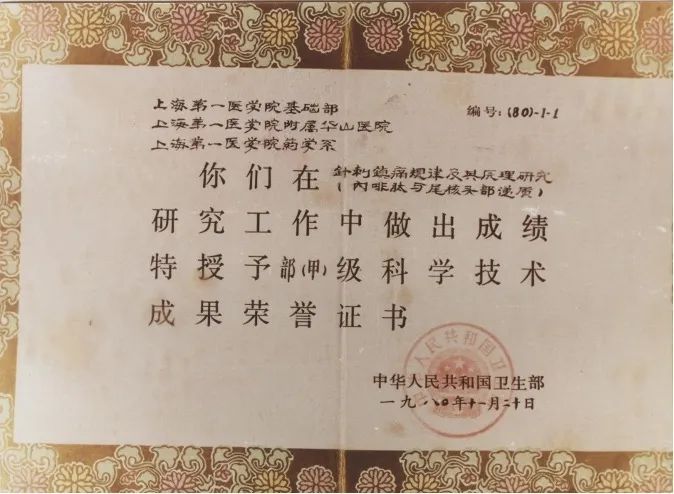 上海第一医学院基础部
编号:(80)-1-1
上海第一医学院附属华山医院
上海第一医学院药学系
你们在针刺鎮痛规律及其原理研究
(内啡肽与尾核头部递质)
研究工作中做出成绩
特授予部(甲)级科学技术
成果荣誉证书
中华人民共和国卫生部
一九八〇年十一月二十日